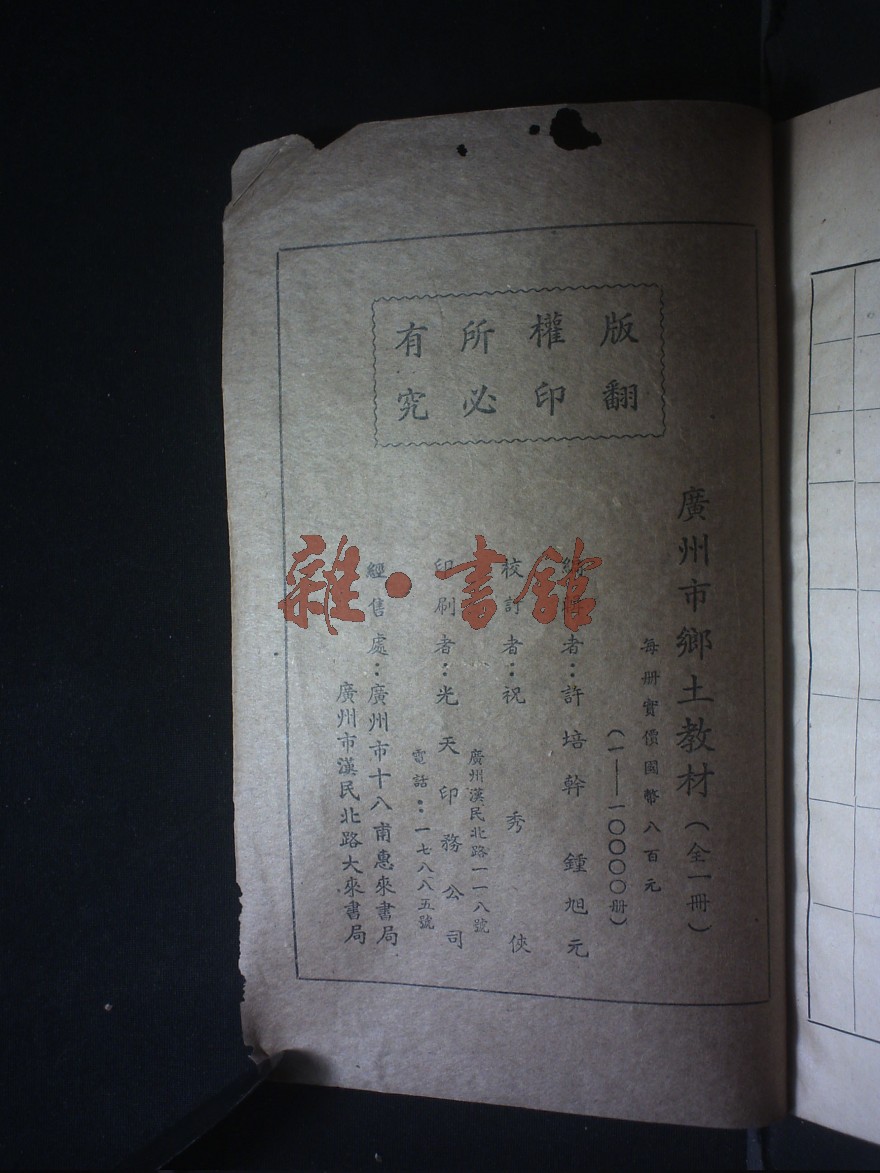 版權所有
翻印必究
廣州市鄉土教材（全一冊）
每册實價國幣八百元
（一——一〇〇〇〇册）
編輯者：許培幹 鍾旭元
校訂者：祝秀俠
廣州漢民北路一一八號
印刷者：光天印務公司
電話：一七八八五號
經售處：廣州市十八甫惠來書局
廣州市漢民北路大來書局
雜·書館